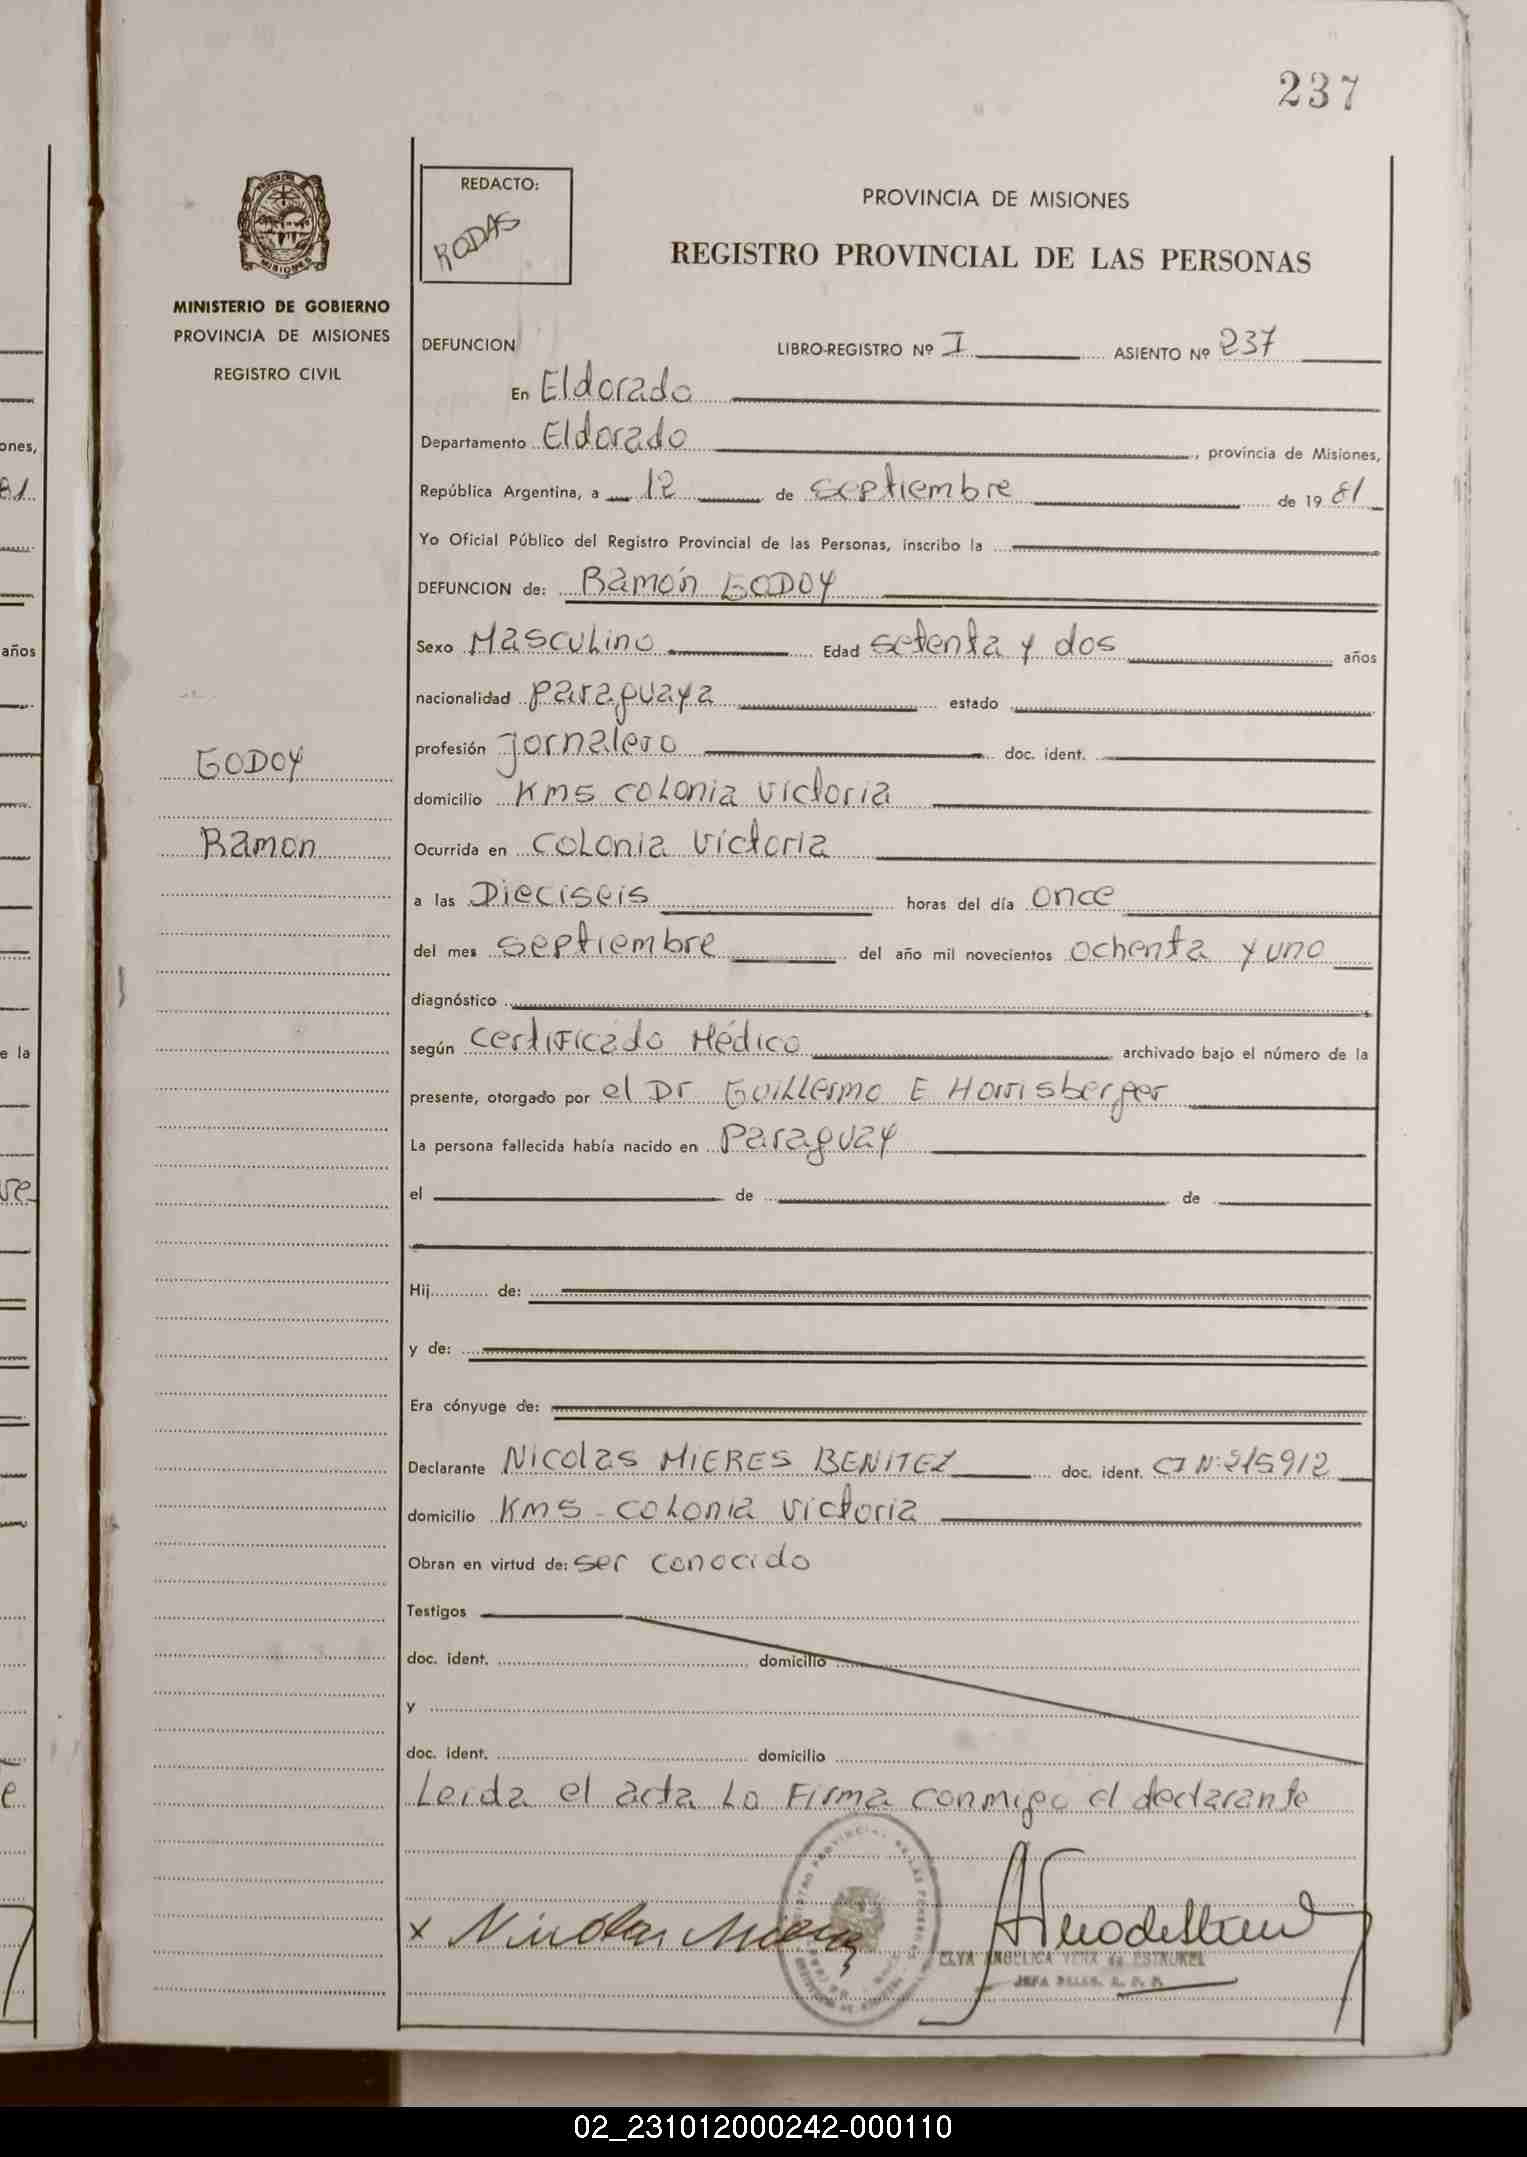 237
REDACTO:
RODAS
PROVINCIA DE MISIONES
REGISTRO PROVINCIAL DE LAS PERSONAS
MISIONES
MINISTERIO DE GOBIERNO
PROVINCIA DE MISIONES
REGISTRO CIVIL
DEFUNCION LIBRO-REGISTRO Nº I ASIENTO Nº 237
En Eldorado
Departamento Eldorado, provincia de Misiones,
República Argentina, a 12 de septiembre de 1981
Yo Oficial Público del Registro Provincial de las Personas, inscribo la
DEFUNCION de: Ramón GODOY
Sexo Masculino Edad setenta y dos años
nacionalidad paraguaya estado
profesión jornalero doc. ident.
GODOY
domicilio Km5 colonia victoria
Ramon
Ocurrida en colonia victoria
a las Dieciseis horas del día once
del mes septiembre del año mil novecientos ochenta y uno
diagnóstico
según certificado Médico archivado bajo el número de la
presente, otorgado por el Dr Guillermo E
La persona fallecida había nacido en Paraguay
el de de
Hij de:
y de:
Era cónyuge de:
Declarante Nicolas MIERES BENITEZ doc. ident. CI Nº 215912
domicilio Km5 - colonia victoria
Obran en virtud de: ser conocido
Testigos
doc. ident. domicilio
y
doc. ident. domicilio
Leida el acta La Firma conmigo el declarante
x Nicolas
ELVA ANGELICA VERA de
JEFA DELEG. R. P. P.
ones,
81
años
e la
02_231012000242-000110